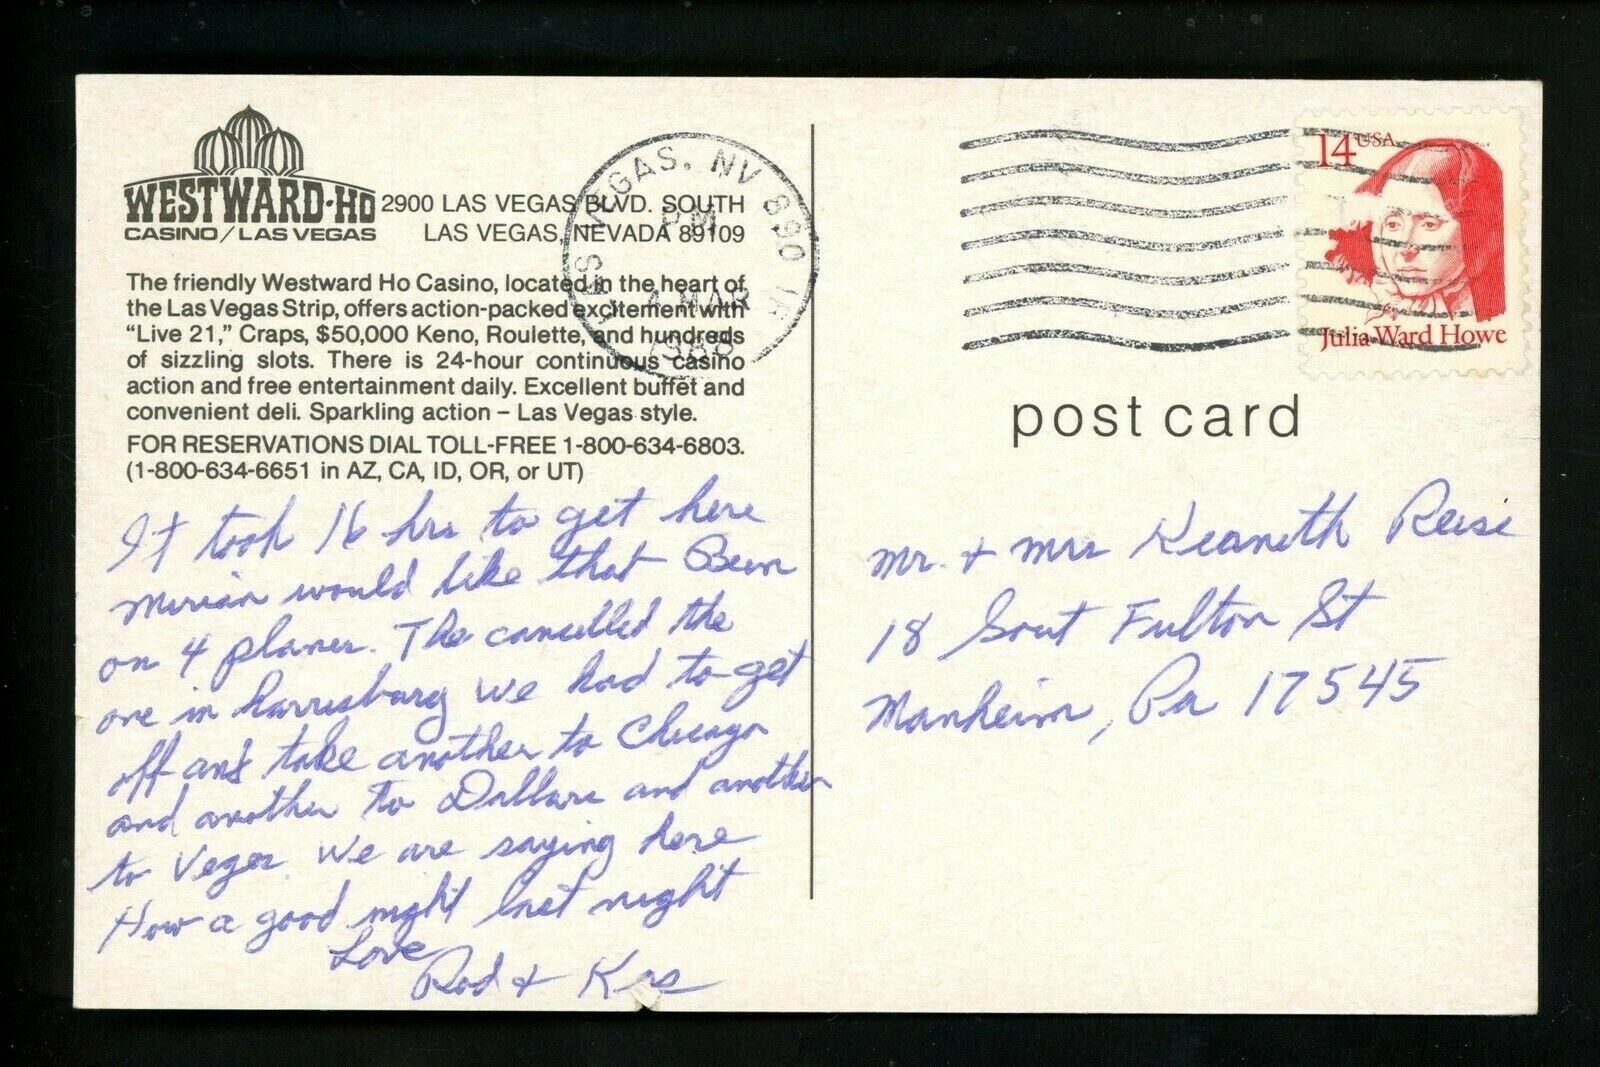 WESTWARD-HO
CASINO/LAS VEGAS
2900 LAS VEGAS BLVD. SOUTH
LAS VEGAS, NEVADA 89109
The friendly Westward Ho Casino, located in the heart of
the Las Vegas Strip, offers action-packed excitement with
“Live 21,” Craps, $50,000 Keno, Roulette, and hundreds
of sizzling slots. There is 24-hour continuous casino
action and free entertainment daily. Excellent buffet and
convenient deli. Sparkling action – Las Vegas style.
FOR RESERVATIONS DIAL TOLL-FREE 1-800-634-6803.
(1-800-634-6651 in AZ, CA, ID, OR, or UT)
It took 16 hrs to get here
Mirian would like that Been
on 4 planes. The cancelled the
one in Harrisburg we had to get
off and take another to Chicago
and another to Dallas and another
to Vegas. We are saying here
How a good night last night
Love
Rod +
LAS VEGAS, NV 890
PM
4 MAR
1988
14 USA
Julia Ward Howe
post card
Mr. + Mrs Kenneth Reise
18 Sout Fulton St
Manheim, Pa 17545